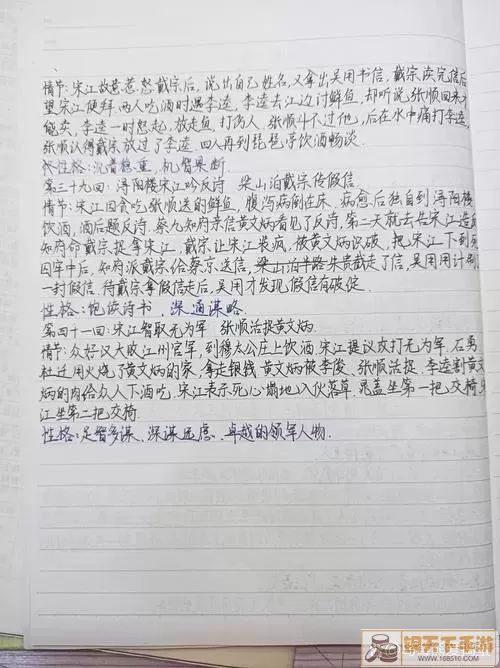 情节:宋江故意惹怒戴宗后,说出自己姓名,又拿出吴用书信,戴宗读完信后
望宋江便拜.两人吃酒时遇李逵,李逵去江边讨鲜鱼,却听说张顺回来才
能卖,李逵一时怒起,放走鱼,打鱼人.张顺斗不过他,后在水中痛打李逵,
张顺认得戴宗放过了李逵.四人再到琵琶亭饮酒畅谈.
性格:沉着稳重,机智果断.
第三十九回:浔阳楼宋江吟反诗 梁山泊戴宗传假信
情节:宋江因食吃张顺送的鲜鱼,腹泻病倒在床.病愈后独自到浔阳楼
饮酒,酒后题反诗.蔡九知府亲信黄文炳看见了反诗,第二天就去告宋江造
知府命戴宗捉拿宋江,戴宗让宋江装疯,被黄文炳识破,把宋江下到死
囚牢中后,知府派戴宗给蔡京送信,梁山泊半路朱贵截走了信,吴用用计
一封假信.待戴宗拿假信走后,吴用才发现假信有破绽.
性格:饱读诗书,深通谋略.
第四十一回:宋江智取无为军 张顺活捉黄文炳.
情节:众好汉大败江州官军,到穆太公庄上饮酒.宋江提议攻打无为军.石勇
杜迁用火烧了黄文炳的家,拿走银钱.黄文炳被李俊、张顺活捉.李逵割黄文
炳的肉给众人下酒吃.宋江表示死心塌地入伙落草.晁盖坐第一把交椅
江坐第二把交椅.
性格:足智多谋,深谋远虑,卓越的领军人物.
蜗天下手游
www.168510.com